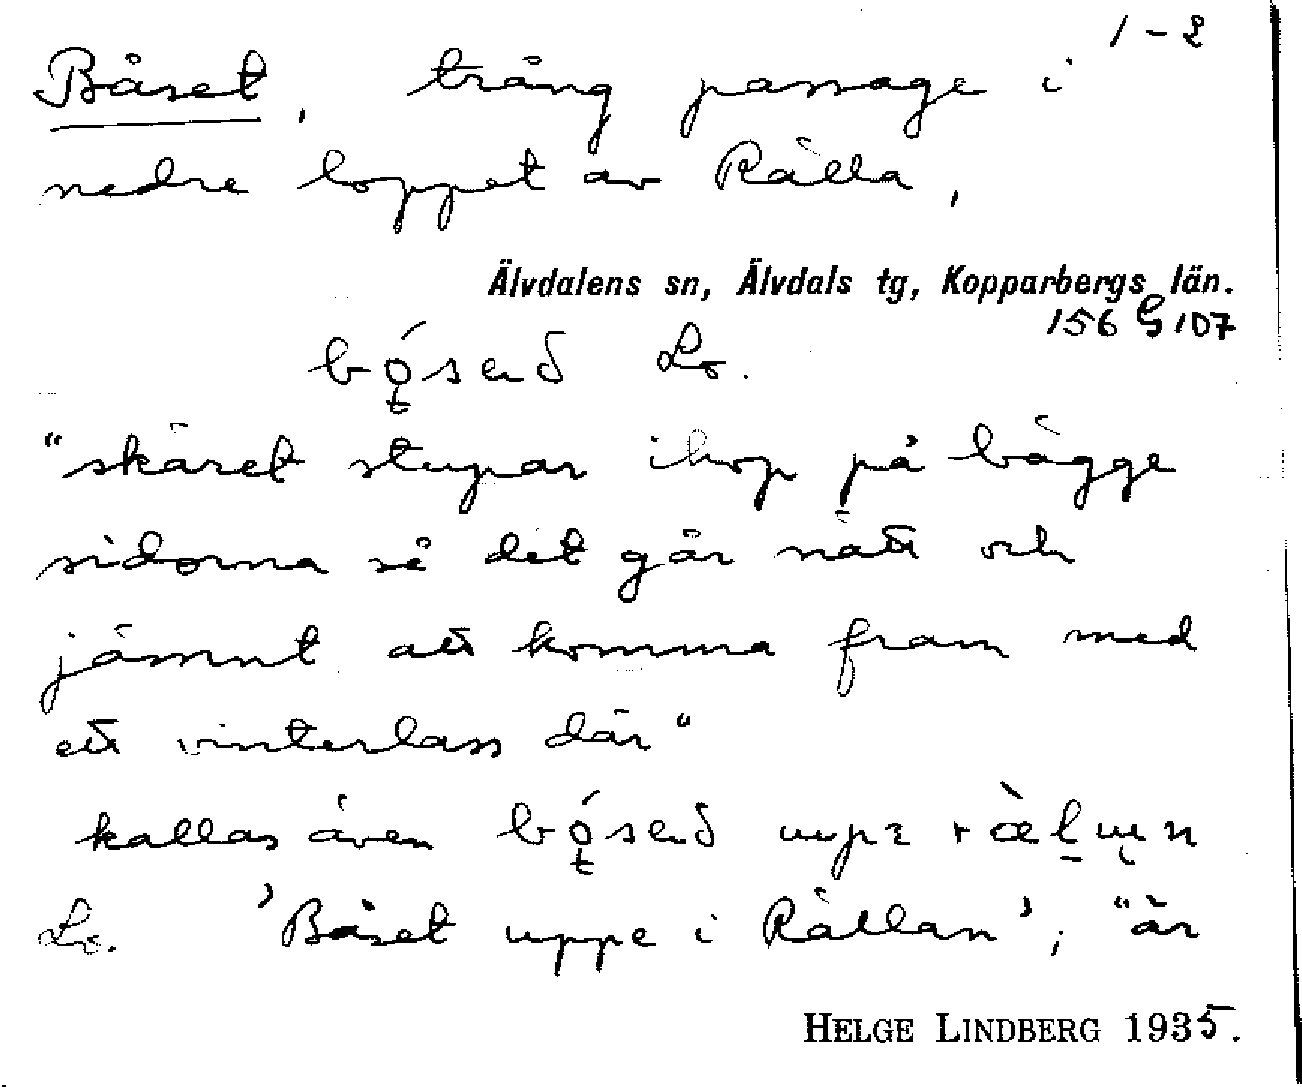 1-2
Båset, trång passage i
nedre loppet av Rälla,
Älvdalens sn, Älvdals tg, Kopparbergs län.
156 G 107
Lo.
"skäret stupar ihop på bägge
sidorna så det går nätt och
jämnt att komma fram med
ett vinterlass där"
kallas även
Lo. 'Båset uppe i Rällan'; "är
HELGE LINDBERG 1935.